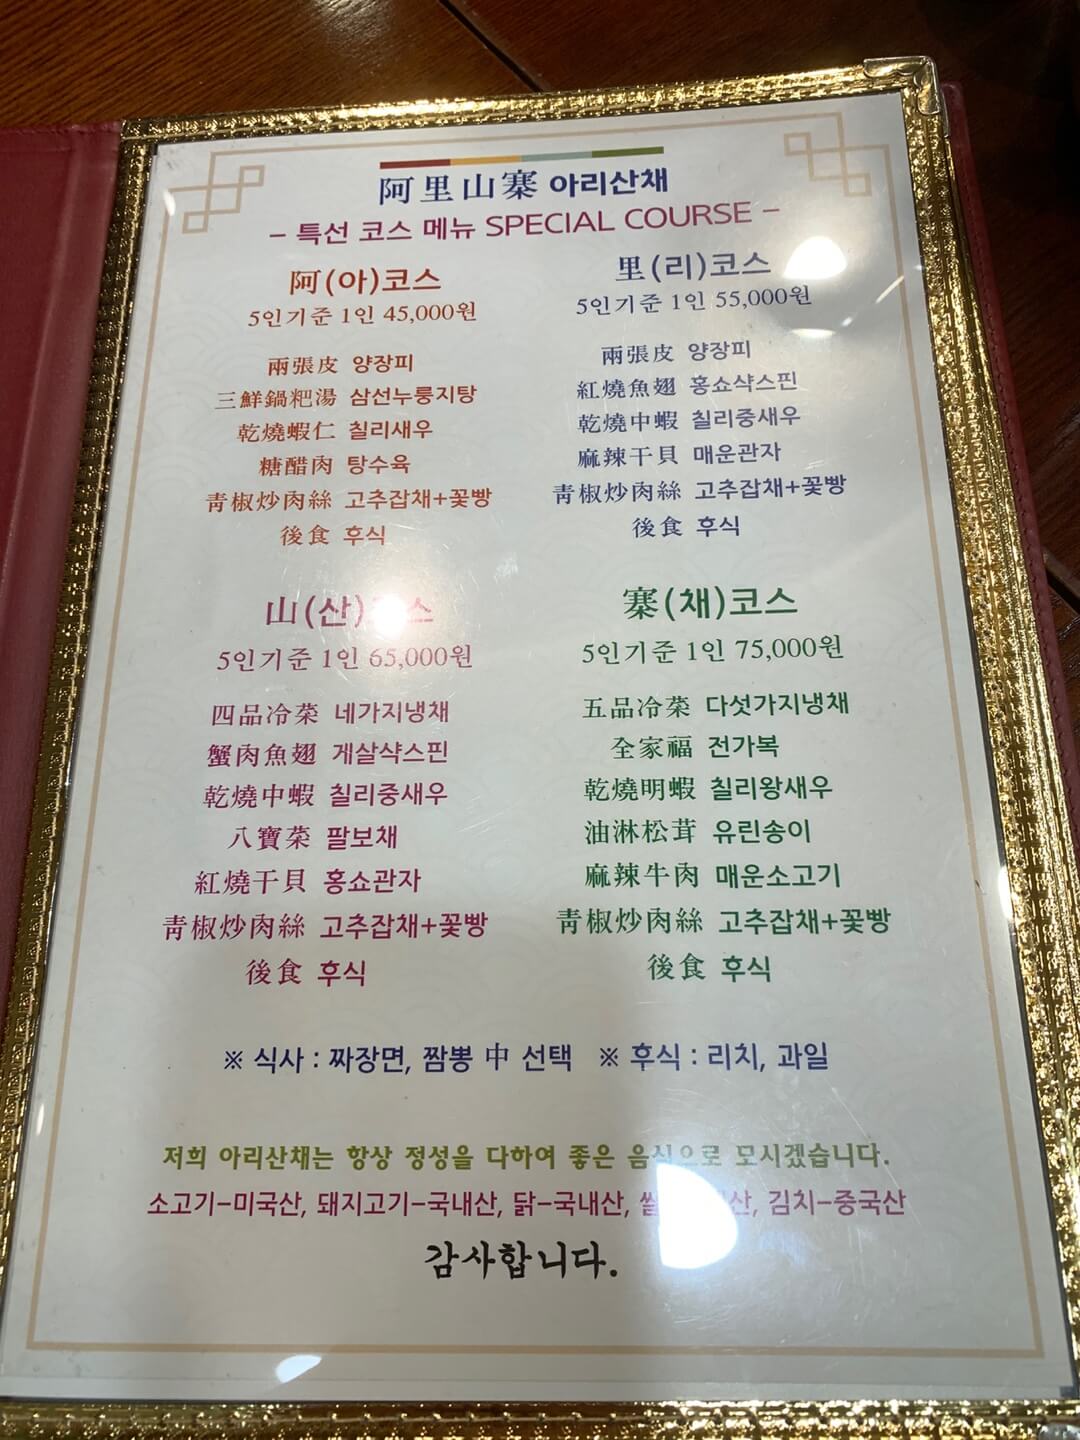 阿里山寨 아리산채
- 특선 코스 메뉴 SPECIAL COURSE -
阿(아)코스
5인기준 1인 45,000원
兩張皮 양장피
三鮮鍋粑湯 삼선누룽지탕
乾燒蝦仁 칠리새우
糖醋肉 탕수육
靑椒炒肉絲 고추잡채+꽃빵
後食 후식
里(리)코스
5인기준 1인 55,000원
兩張皮 양장피
紅燒魚翅 홍쇼샥스핀
乾燒中蝦 칠리중새우
麻辣干貝 매운관자
靑椒炒肉絲 고추잡채+꽃빵
後食 후식
山(산)코스
5인기준 1인 65,000원
四品冷菜 네가지냉채
蟹肉魚翅 게살샥스핀
乾燒中蝦 칠리중새우
八寶菜 팔보채
紅燒干貝 홍쇼관자
靑椒炒肉絲 고추잡채+꽃빵
後食 후식
寨(채)코스
5인기준 1인 75,000원
五品冷菜 다섯가지냉채
全家福 전가복
乾燒明蝦 칠리왕새우
油淋松茸 유린송이
麻辣牛肉 매운소고기
靑椒炒肉絲 고추잡채+꽃빵
後食 후식
※ 식사 : 짜장면, 짬뽕 中 선택 ※ 후식 : 리치, 과일
저희 아리산채는 항상 정성을 다하여 좋은 음식으로 모시겠습니다.
소고기-미국산, 돼지고기-국내산, 닭-국내산, 김치-중국산
감사합니다.